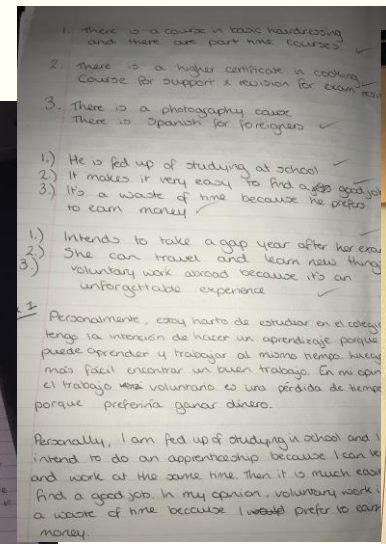 1. There is a course in basic hairdressing
and there are part time courses
2. There is a higher certificate in cooking
Course for support & revision for exam
3. There is a photography
There is Spanish for foreigners
1.) He is fed up of studying at school
2.) It makes it very easy to find a good job
3.) It's a waste of time because he prefers
to earn money
1.) Intends to take a gap year after her
2.) She can travel and learn new
3.) voluntary work abroad because it's an
unforgettable experience
Personalmente, estoy harto de estudiar en el
tengo la intención de hacer un aprendizaje porque
puede aprender y trabajar al mismo tiempo.
más fácil encontrar un buen trabajo. En mi
el trabajo voluntario es una pérdida de
porque preferiría ganar dinero.
Personally, I am fed up of studying in school and I
intend to do an apprenticeship because I can
and work at the same time. Then it is much
find a good job. In my opinion, voluntary work
a waste of time because I prefer to
money.